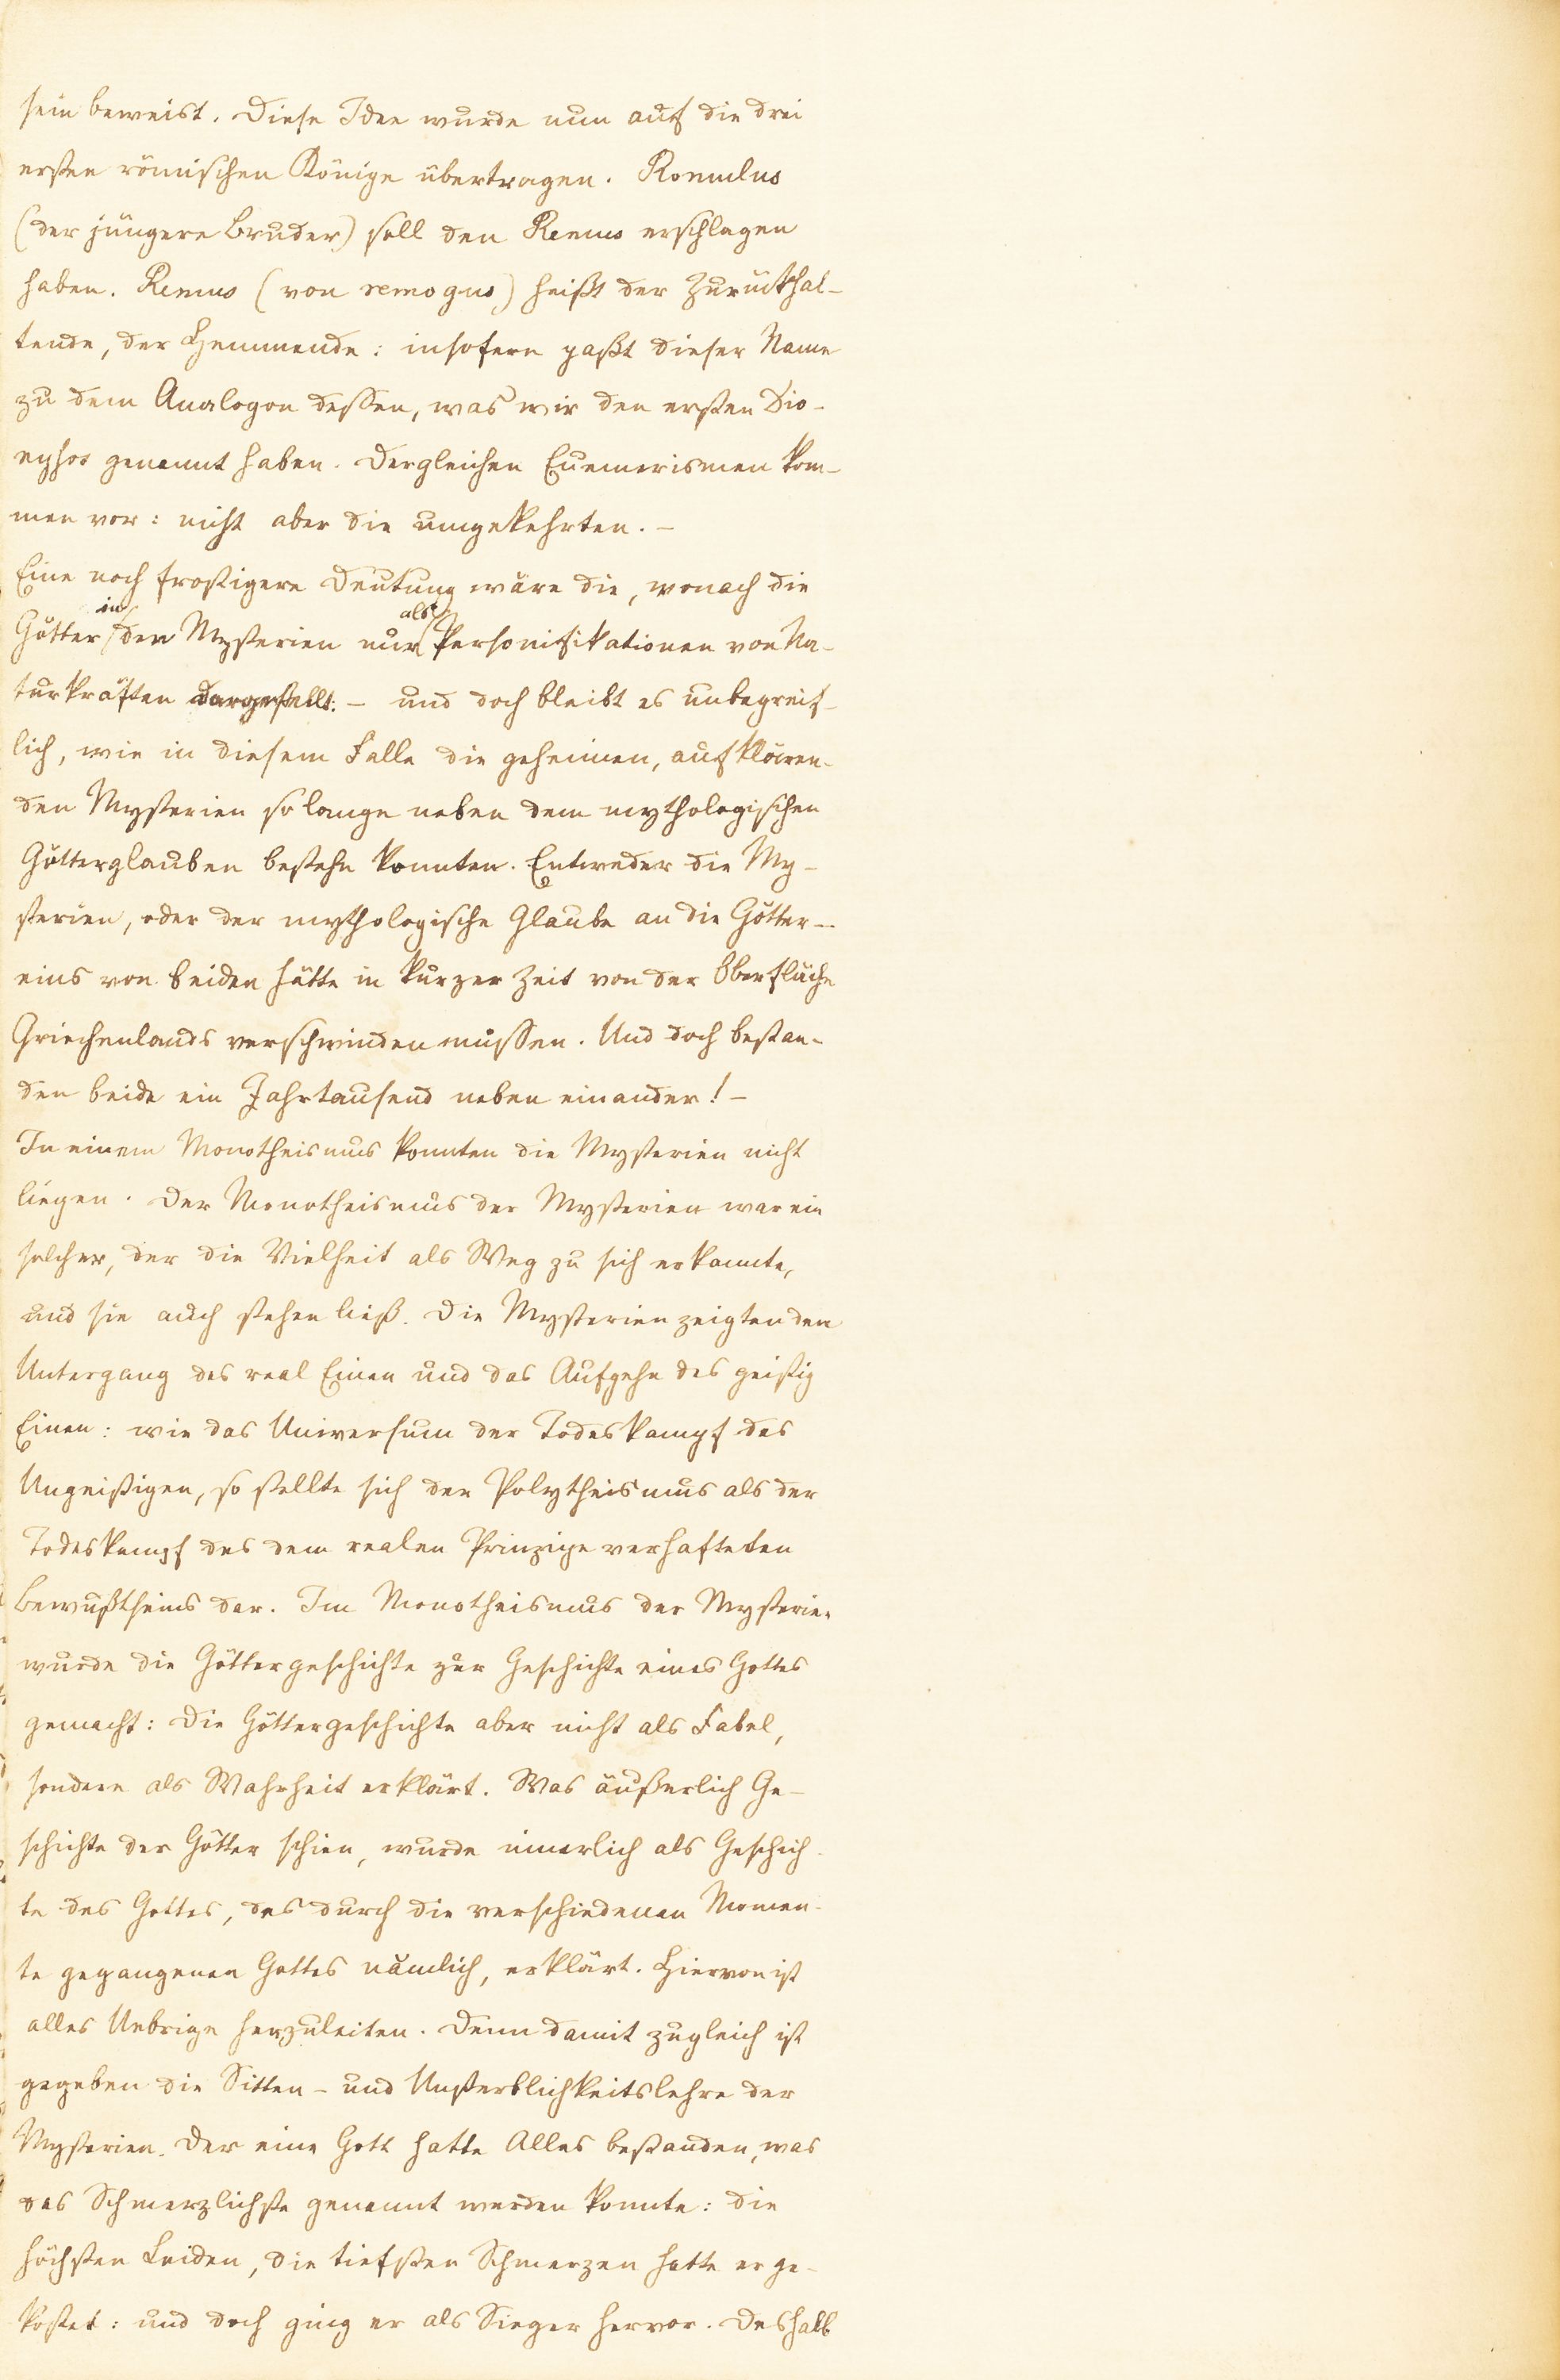 sein beweist. Diese Idee wurde nun auf die drei
ersten römischen Könige übertragen. Romulus
(der jüngere Bruder) soll den Remus erschlagen
haben. Remus (von remogus) heißt der Zurückhal-
tende, der Hemmende: insofern paßt dieser Name
zu dem Analogon dessen, was wir den ersten Dio-
nysos genannt haben. Dergleichen Euemerismen kom-
men vor: nicht aber die umgekehrten. –
Eine noch frostigere Deutung wäre die, wonach die
Götter in den Mysterien nur als Personifikationen von Na-
turkräften dargestellt. – und doch bleibt es unbegreif-
lich, wie in diesem Falle die geheimen, aufklären-
den Mysterien so lange neben dem mythologischen
Götterglauben bestehn konnten. Entweder die My-
sterien, oder der mythologische Glaube an die Götter –
eins von beiden hätte in kurzer Zeit von der Oberfläche
Griechenlands verschwinden müssen. Und doch bestan-
den beide ein Jahrtausend neben einander! –
In einem Monotheismus konnten die Mysterien nicht
liegen. Der Monotheismus der Mysterien war ein
solcher, der die Vielheit als Weg zu sich erkannte,
und sie auch stehen ließ. Die Mysterien zeigten den
Untergang des real Einen und das Aufgehn des geistig
Einen: wie das Universum der Todeskampf des
Ungeistigen, so stellte sich der Polytheismus als der
Todeskampf des dem realen Prinzipe verhafteten
Bewußtseins dar. Im Monotheismus der Mysterien
wurde die Göttergeschichte zur Geschichte eines Gottes
gemacht: die Göttergeschichte aber nicht als Fabel,
sondern als Wahrheit erklärt. Was äußerlich Ge-
schichte der Götter schien, wurde innerlich als Geschich-
te des Gottes, des durch die verschiedenen Momen-
te gegangenen Gottes nämlich, erklärt. Hiervon ist
alles Uebrige herzuleiten. Denn damit zugleich ist
gegeben die Sitten- und Unsterblichkeitslehre der
Mysterien. Der eine Gott hatte Alles bestanden, was
das Schmerzlichste genannt werden konnte: die
höchsten Leiden, die tiefsten Schmerzen hatte er ge-
kostet: und doch ging er als Sieger hervor. Deshalb